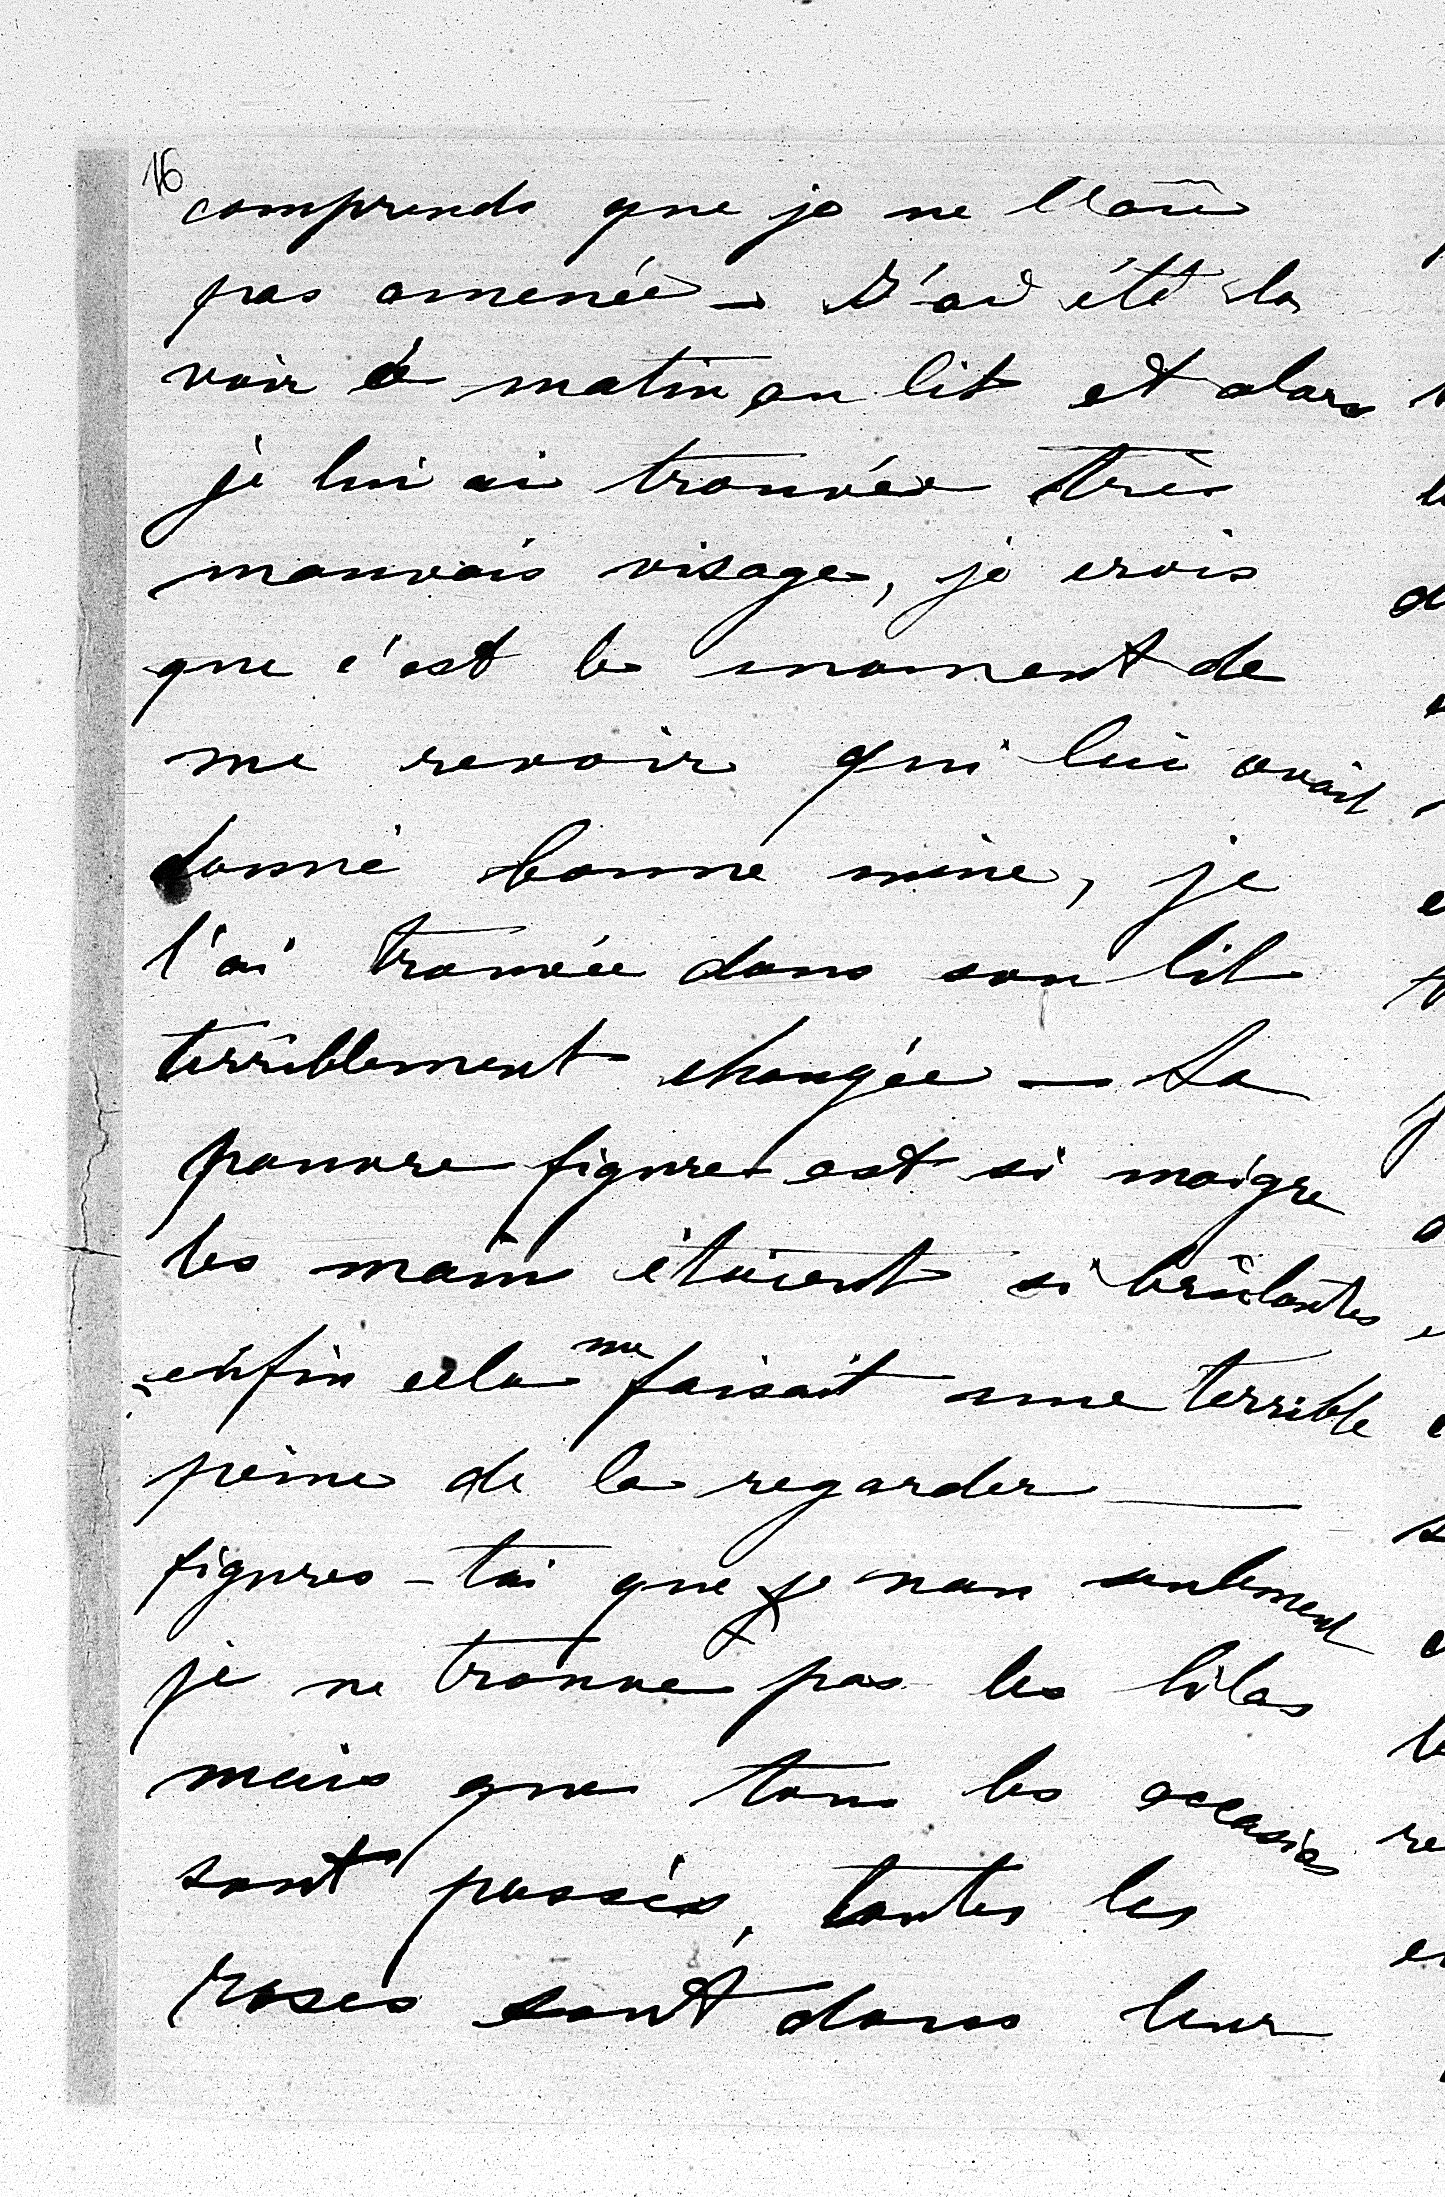 16
comprends que je ne l'aie
pas amenée — J'ai été la
voir ce matin au lit et alors
je lui ai trouvée très
mauvais visage, je crois
que c'est le moment de
me revoir qui lui avait
donné bonne mine, je
l'ai trouvée dans son lit
terriblement changée — Sa
pauvre figure est si maigre
les mains étaient si brûlantes
enfin cela me faisait une terrible
peine de la regarder —
figures-toi que je non seulement
je ne trouve pas les lilas
mais que tous les
sont passés, toutes les
roses sont dans leur